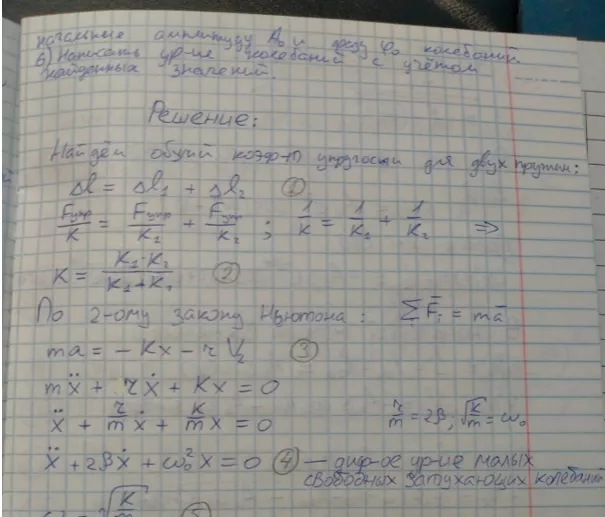 начальные амплитуду A₀ и фазу φ₀ колебаний.
6) Написать ур-ие колебаний с учётом
найденных значений.
Решение:
Найдём общий коэф-т упругости для двух пружин:
Δl = Δl₁ + Δl₂ (1)
Fупр/K = Fупр/K₁ + Fупр/K₂ ; 1/K = 1/K₁ + 1/K₂ ⇒
K = K₁·K₂/K₁+K₂ (2)
По 2-ому закону Ньютона: ΣF̄ᵢ = mā
ma = −Kx − rV₂ (3)
mẍ + rẋ + Kx = 0
ẍ + r/m ẋ + K/m x = 0 r/m = 2β, √(K/m) = ω₀
ẍ + 2βẋ + ω₀²x = 0 (4) — диф-ое ур-ие малых
свободных затухающих колебаний
√(K/m) (5)